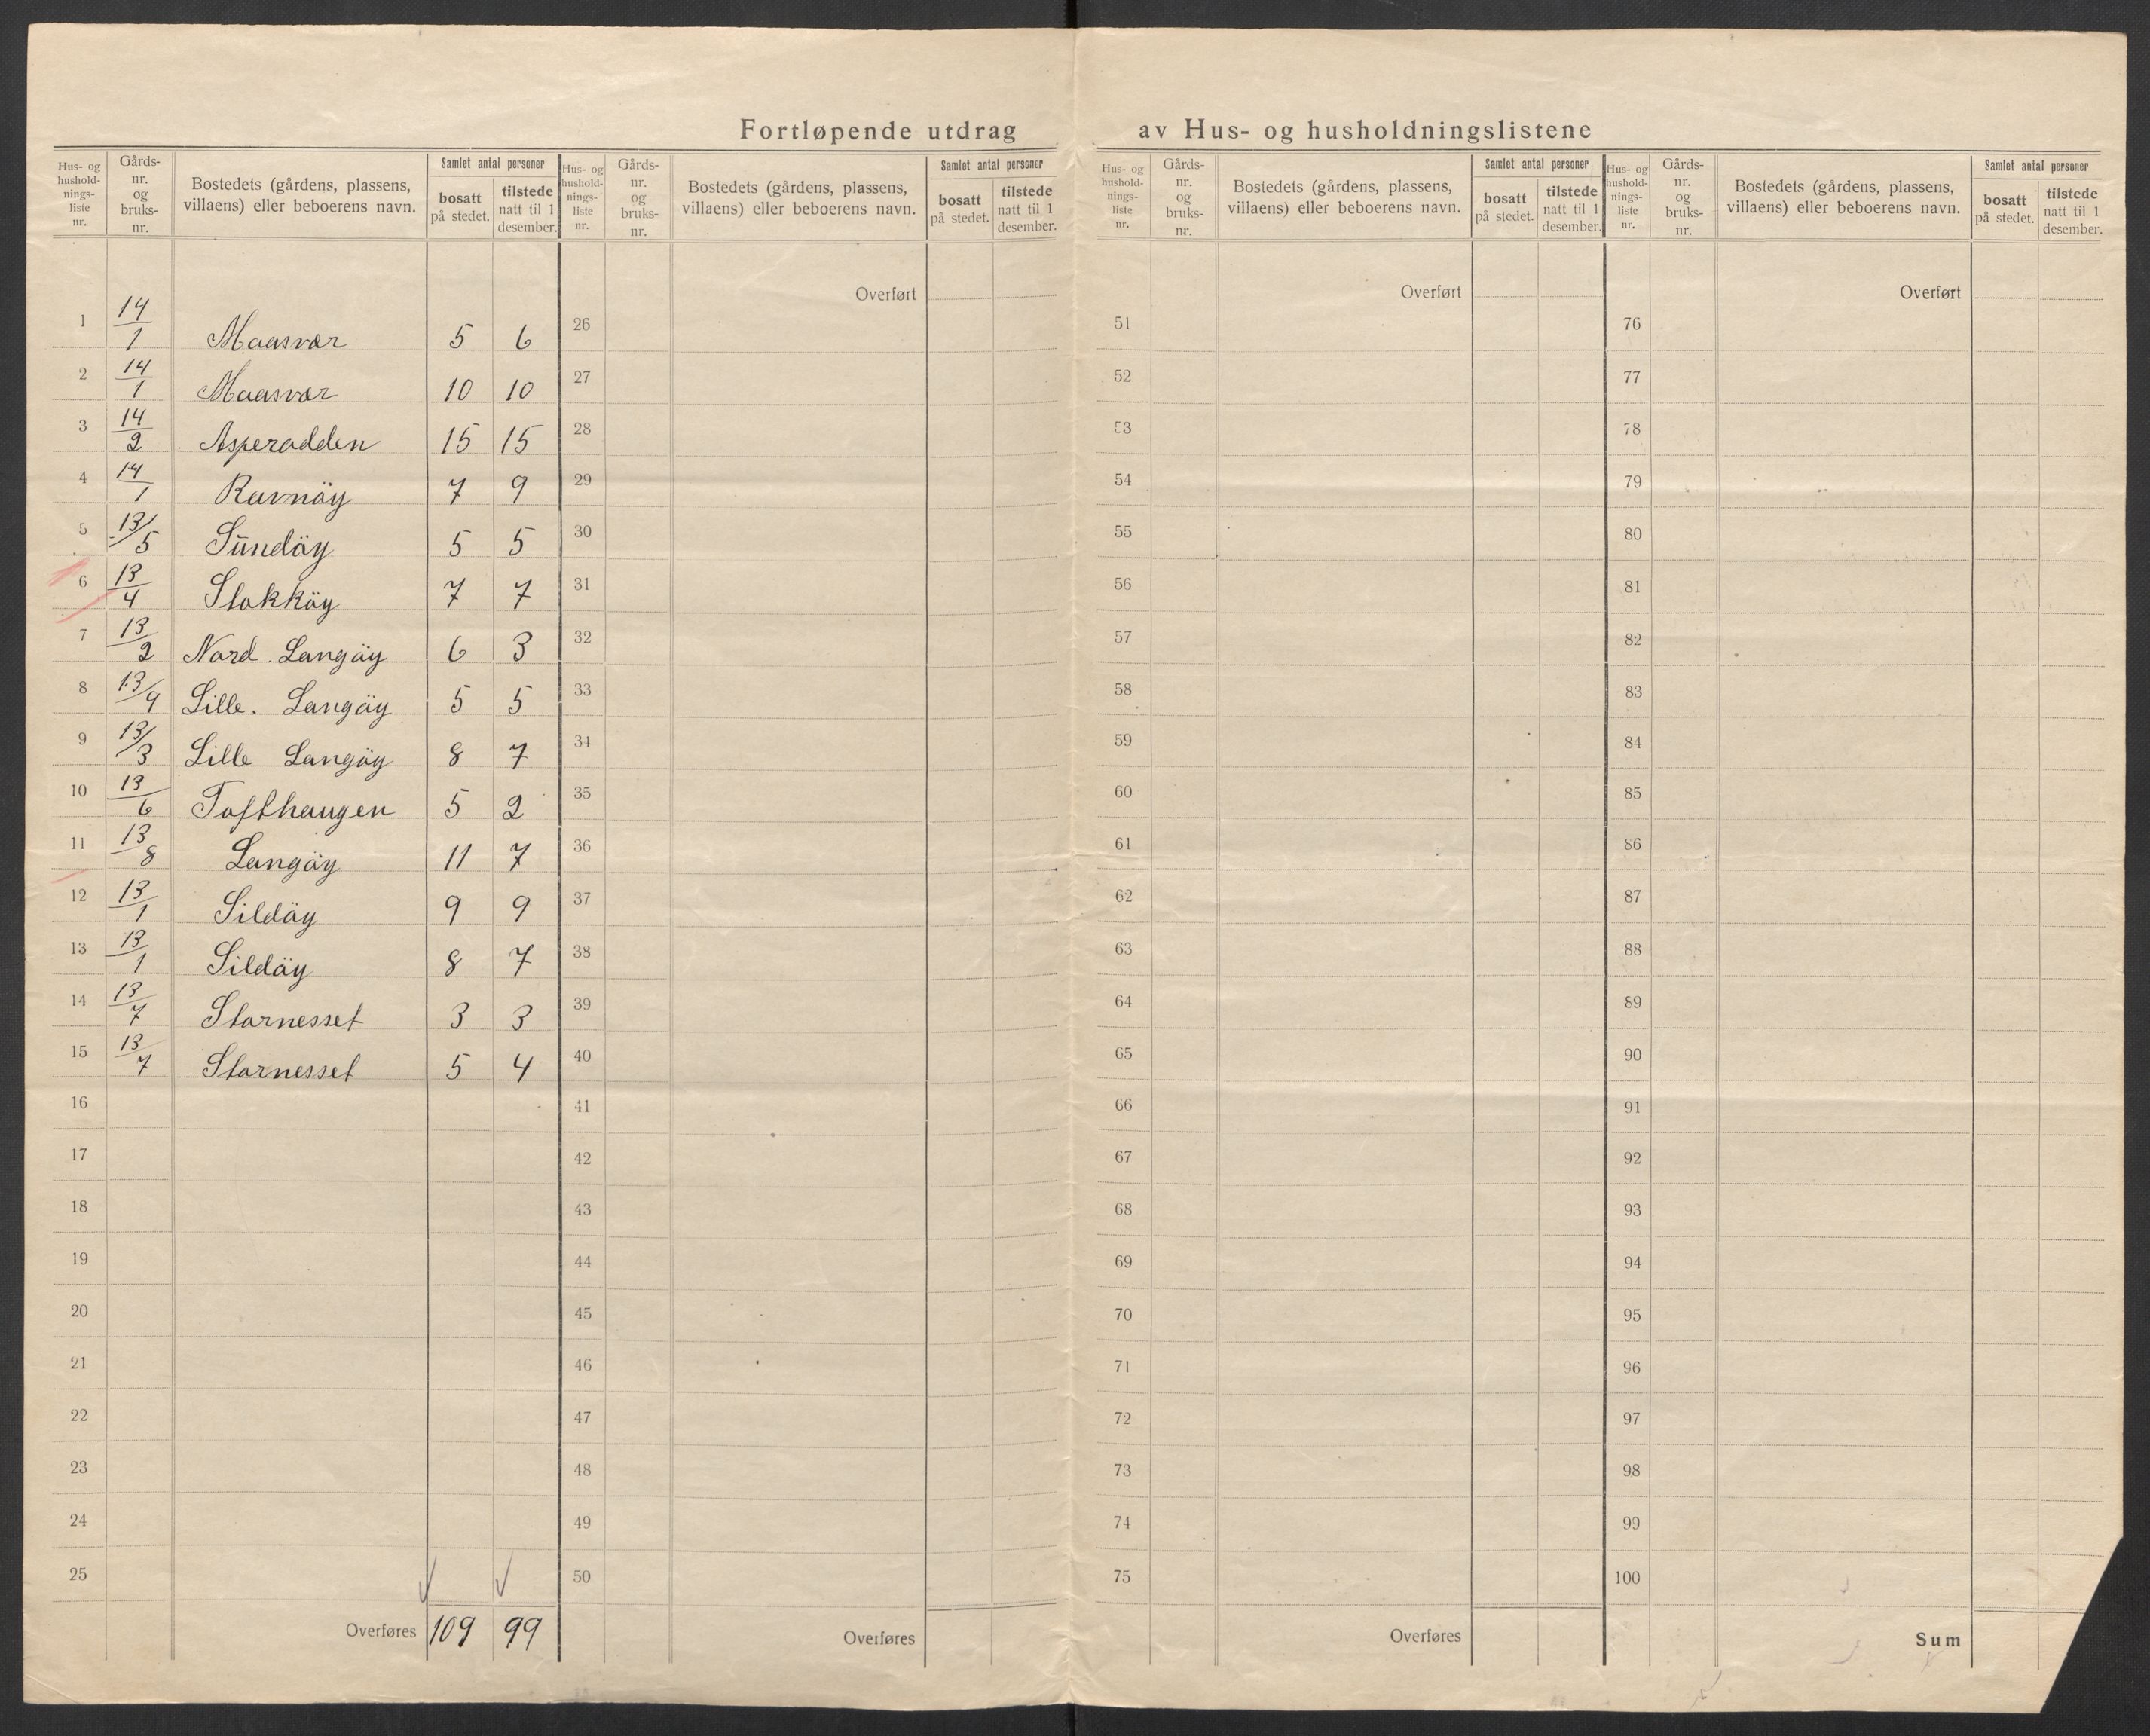 Fortløpende utdrag av Hus- og husholdningslistene
Hus- og husholdnings-liste nr. | Gårds-nr. og bruks-nr. | Bostedets (gårdens, plassens, villaens) eller beboerens navn. | Samlet antal personer | bosatt på stedet. | tilstede natt til 1 desember.
1 14/1 Maasvær 5 6
2 14/1 Maasvær 10 10
3 14/2 Asperodden 15 15
4 14/1 Ravnöy 7 9
5 13/5 Sŭndöy 5 5
6 13/4 Stokköy 7 7
7 13/2 Nord. Langöy 6 3
8 13/9 Lille. Langöy 5 5
9 13/3 Lille Langöy 8 7
10 13/6 Tofthaugen 5 2
11 13/8 Langöy 11 7
12 13/1 Sildöy 9 9
13 13/1 Sildöy 8 7
14 13/7 Stornesset 3 3
15 13/7 Stornesset 5 4
16
17
18
19
20
21
22
23
24
25
Overføres 109 99
Hus- og husholdnings-liste nr. | Gårds-nr. og bruks-nr. | Bostedets (gårdens, plassens, villaens) eller beboerens navn. | Samlet antal personer | bosatt på stedet. | tilstede natt til 1 desember.
Overført
26
27
28
29
30
31
32
33
34
35
36
37
38
39
40
41
42
43
44
45
46
47
48
49
50
Overføres
Hus- og husholdnings-liste nr. | Gårds-nr. og bruks-nr. | Bostedets (gårdens, plassens, villaens) eller beboerens navn. | Samlet antal personer | bosatt på stedet. | tilstede natt til 1 desember.
Overført
51
52
53
54
55
56
57
58
59
60
61
62
63
64
65
66
67
68
69
70
71
72
73
74
75
Overføres
Hus- og husholdnings-liste nr. | Gårds-nr. og bruks-nr. | Bostedets (gårdens, plassens, villaens) eller beboerens navn. | Samlet antal personer | bosatt på stedet. | tilstede natt til 1 desember.
Overført
76
77
78
79
80
81
82
83
84
85
86
87
88
89
90
91
92
93
94
95
96
97
98
99
100
Sum